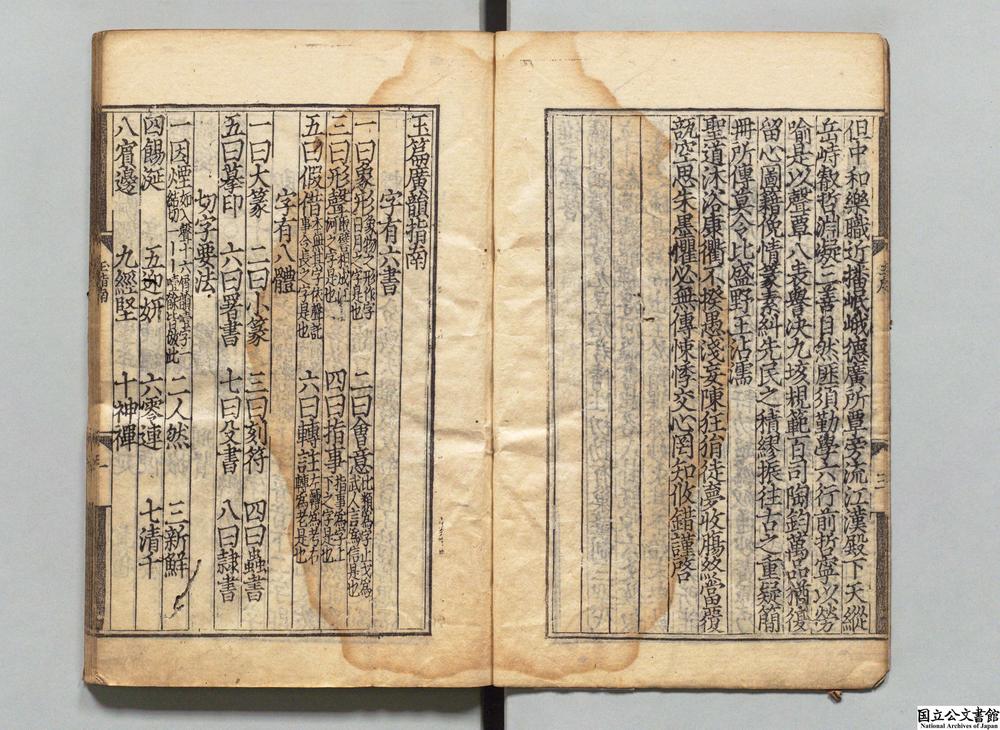 但中和樂職近播岷峨德廣所覃旁流江漢殿下天縱
岳峙叡哲淵凝三善自然匪須勤學六行前哲寧以勞
喻是以聲覃八表譽決九垓規範百司陶鈞萬品猶復
留心圖籍俛情篆素糾先民之積繆振往古之重疑簡
冊所傳莫令比盛野王沾濡
聖道沐浴康衢不揆愚淺妄陳狂狷徒夢收腸終當覆
瓿空思朱墨懼必無傳悚悸交心罔知攸錯謹啓
玉序
三
玉篇廣韻指南
字有六書
一曰象形 象物之形作字日月之字是也 二曰會意 比類爲字止戈爲武人言爲信是也
三曰形聲 取譬相成江河之字是也 四曰指事 指事爲字上下之字是也
五曰假借 本無其字依聲託事令長之字是也 六曰轉註 左轉爲考右轉爲老是也
字有八體
一曰大篆 二曰小篆 三曰刻符 四曰蟲書
五曰摹印 六曰署書 七曰殳書 八曰隷書
切字要法
一因煙 二人然 三新鮮
四餳涎 五迎妍 六零連 七清千
八賓邊 九經堅 十神禪
玉指南
一
国立公文書館
National Archives of Japan